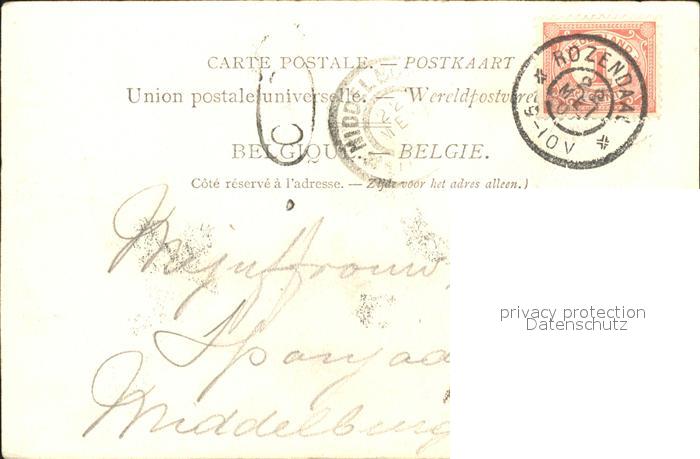 CARTE POSTALE. — POSTKAART
Union postale universelle. — Wereldpostvere
BELGIQU — BELGIE.
Côté réservé à l'adresse. — Zijde voor het adres alleen.)
NEDERLAND
* ROZENDAAL *
MIDDELB
22
Mejuffrouw,
Spanjaa
Middelburg
privacy protection
Datenschutz